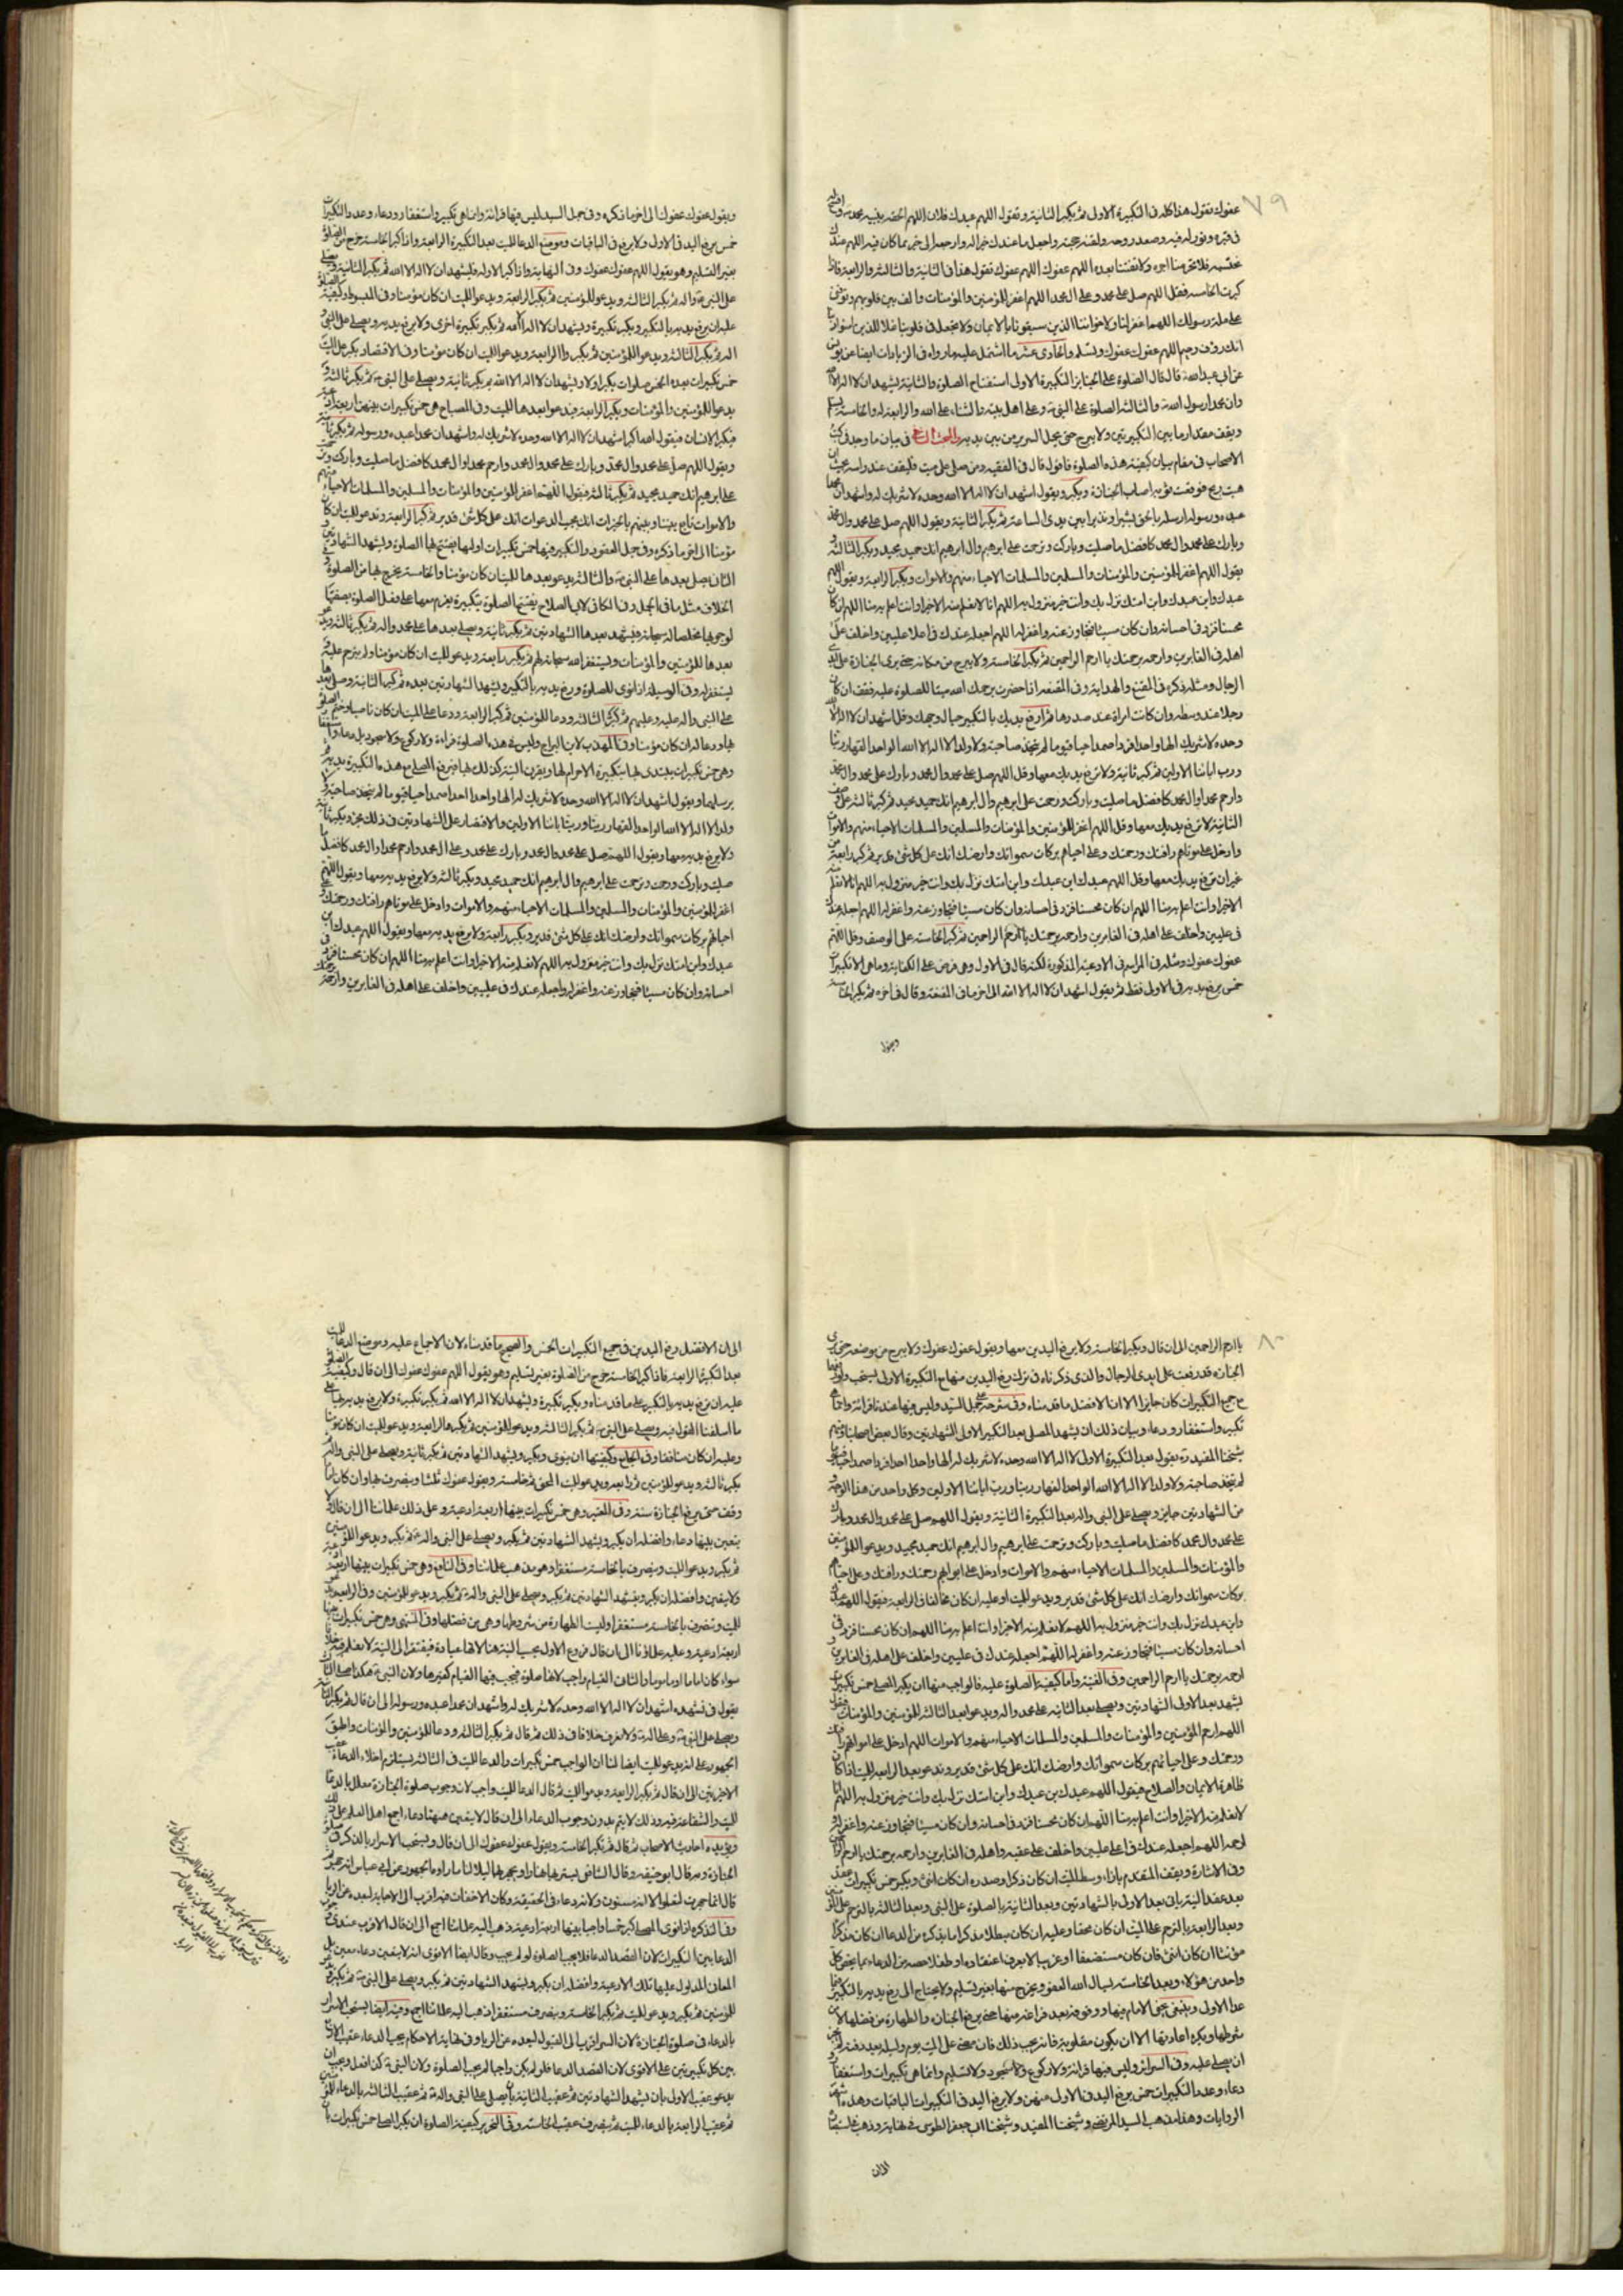 ٧٩
عفوك تقول هذا كله في التكبيرة الاولى ثم يكبر الثانية وتقول اللهم عبدك فلان اللهم الحقه بنبيه
في قبره ونور له فيه وصعد روحه ولقنه حجته واجعل ما عندك خيرا له وارجعه الى خير مما كان فيه اللهم عندك
نحتسبه فلا تحرمنا اجره ولا تفتنا بعده اللهم عفوك اللهم عفوك تقول هذا في الثانية والثالثة والرابعة فاذا
كبرت الخامسة فقل اللهم صل على محمد وعلى ال محمد اللهم اغفر للمؤمنين والمؤمنات والف بين قلوبهم وتوفني
على ملة رسولك اللهم اغفر لنا ولاخواننا الذين سبقونا بالايمان ولا تجعل في قلوبنا غلا للذين امنوا ربنا
انك رؤف رحيم اللهم عفوك عفوك وتسلم والحادي عشر ما اشتمل عليه ما رواه في الزيادات ايضا عن يونس
عن ابي عبد الله قال قال الصلوة على الجنايز التكبيرة الاولى استفتاح الصلوة والثانية يشهد ان لا اله الا الله
وان محمدا رسول الله والثالثة الصلوة على النبي وعلى اهل بيته والثناء على الله والرابعة له والخامسة يسلم
ويقف مقدار ما بين التكبيرتين ولا يبرح حتى يحمل السرير من بين يديه في بيان ما وجد في كتب
الاصحاب في مقام بيان كيفية هذه الصلوة فاقول قال في الفقيه ومن صلى على ميت فليقف عند راسه بحيث ان
هبت ريح فرفعت ثوبه اصاب الجنازة ويكبر ويقول اشهد ان لا اله الا الله وحده لا شريك له واشهد ان محمدا
عبده ورسوله ارسله بالحق بشيرا ونذيرا بين يدي الساعة ثم يكبر الثانية ويقول اللهم صل على محمد وال محمد
وبارك على محمد وال محمد كافضل ما صليت وباركت وترحمت على ابرهيم وال ابرهيم انك حميد مجيد ويكبر الثالثة و
يقول اللهم اغفر للمؤمنين والمؤمنات والمسلمين والمسلمات الاحياء منهم والاموات ويكبر الرابعة ويقول اللهم
عبدك وابن عبدك وابن امتك نزل بك وانت خير منزول به اللهم انا لا نعلم منه الا خيرا وانت اعلم به منا اللهم ان كان
محسنا فزد في احسانه وان كان مسيئا فتجاوز عنه واغفر له اللهم اجعله عندك في اعلا عليين واخلف على
اهله في الغابرين وارحمه برحمتك يا ارحم الراحمين ثم يكبر الخامسة ولا يبرح من مكانه حتى يرى الجنازة على ايدي
الرجال ومثله ذكره في المقنع والهداية وفي المقنعه اذا حضرت يرحمك الله ميتا للصلوة عليه فقف ان كان
رجلا عند وسطه وان كانت امراة عند صدرها ثم ارفع يديك بالتكبير حيال وجهك وقل اشهد ان لا اله الا الله
وحده لا شريك له الها واحدا فردا صمدا حيا قيوما لم يتخذ صاحبة ولا ولدا لا اله الا الله الواحد القهار ربنا
ورب ابائنا الاولين ثم كبر ثانية ولا ترفع يديك معها وقل اللهم صل على محمد وال محمد وبارك على محمد وال محمد
وارحم محمدا وال محمد كافضل ما صليت وباركت ورحمت على ابرهيم وال ابرهيم انك حميد مجيد ثم كبر ثالثة على
الثانية لا ترفع يديك معها وقل اللهم اغفر للمؤمنين والمؤمنات والمسلمين والمسلمات الاحياء منهم والاموات
وادخل على موتاهم رافتك ورحمتك وعلى احيائهم بركات سمواتك وارضك انك على كل شئ قدير ثم كبر رابعة من
غير ان ترفع يديك معها وقل اللهم عبدك ابن عبدك وابن امتك نزل بك وانت خير منزول به اللهم انا لا نعلم منه
الا خيرا وانت اعلم به منا اللهم ان كان محسنا فزد في احسانه وان كان مسيئا فتجاوز عنه واغفر له اللهم اجعله عندك
في عليين واخلف على اهله في الغابرين وارحمه برحمتك يا ارحم الراحمين ثم كبر الخامسة على الوصف وقل اللهم
عفوك عفوك ومثله في المراسم في الادعية المذكورة لكنه قال في الاول وهي فرض على الكفاية وما هي الا تكبيرات
خمس يرفع يديه في الاولى فقط ثم يقول اشهد ان لا اله الا الله الى اخر ما في المقنعة وقال في اخره ثم يكبر الخامسة
ويقول
ويقول عفوك عفوك الى اخر ما ذكره وفي جمل السيد ليس فيها قرائة وانما هي تكبير واستغفار ودعاء وعدد التكبيرات
خمس يرفع اليد في الاولى ولا يرفع في الباقيات وموضع الدعا للميت بعد التكبيرة الرابعة واذا كبر الخامسة خرج من الصلوة
بغير التسليم وهو يقول اللهم عفوك عفوك وفي النهاية واذا كبر الاولة فليشهد ان لا اله الا الله ثم يكبر الثانية ويصلي
على النبي واله ثم يكبر الثالثة ويدعو للمؤمنين ثم يكبر الرابعة ويدعو للميت ان كان مؤمنا وفي المبسوط وكيفية الصلوة
عليه ان يرفع يديه بالتكبير ويكبر تكبيرة ويشهد ان لا اله الا الله ثم يكبر تكبيرة اخرى ولا يرفع يديه ويصلي على النبي و
اله ثم يكبر الثالثة ويدعو للمؤمنين ثم يكبر الرابعة ويدعو للميت ان كان مؤمنا وفي الاقتصاد يكبر على الميت
خمس تكبيرات بعدد الخمس صلوات يكبر اولا ويشهد ان لا اله الا الله ثم يكبر ثانية ويصلي على النبي ثم يكبر ثالثة و
يدعو للمؤمنين والمؤمنات ويكبر الرابعة فيدعو بعدها للميت وفي المصباح هي خمس تكبيرات بينهن اربعة ادعية
فيكبر الانسان فيقول الله اكبر اشهد ان لا اله الا الله وحده لا شريك له واشهد ان محمدا عبده ورسوله ثم يكبر ثانية
ويقول اللهم صل على محمد وال محمد وبارك على محمد وال محمد وارحم محمدا وال محمد كافضل ما صليت وباركت وترحمت
على ابرهيم انك حميد مجيد ثم يكبر ثالثة فيقول اللهم اغفر للمؤمنين والمؤمنات والمسلمين والمسلمات الاحياء منهم
والاموات تابع بيننا وبينهم بالخيرات انك مجيب الدعوات انك على كل شئ قدير ثم كبر الرابعة وتدعو للميت ان كان
مؤمنا الى اخر ما ذكره وفي جمل العقود والتكبير فيها خمس تكبيرات اولها يفتتح بها الصلوة ويشهد الشهادتين و
الثاني يصلي بعدها على النبي والثالثة يدعو بعدها للميت ان كان مؤمنا والخامسة يخرج بها من الصلوة وفي
الخلاف مثل ما في الجمل وفي الكافي لابي الصلاح يفتتح الصلوة بتكبيرة يعزم معها على فعل الصلوة بصفتها
لوجوبها مخلصا له سبحانه فيتشهد بعدها الشهادتين ثم يكبر ثانية ويصلي بعدها على محمد واله ثم يكبر ثالثة ويدعو
بعدها للمؤمنين والمؤمنات ويستغفر الله سبحانه لهم ثم يكبر رابعة ويدعو للميت ان كان مؤمنا وليترحم عليه و
ليستغفر له وفي الوسيلة اذا نوى للصلوة ورفع يديه بالتكبير وليشهد الشهادتين بعده ثم كبر الثانية وصلى بعدها
على النبي واله عليه وعليهم ثم كبر الثالثة ودعا للمؤمنين ثم كبر الرابعة ودعا على الميت ان كان ناصبا وختم الصلوة
بها ودعا له ان كان مؤمنا وفي المهذب لابن البراج وليس في هذه الصلوة قراءة ولا ركوع ولا سجود بل دعاء واستغفار
وهي خمس تكبيرات يبتدي بها بتكبيرة الاحرام لها ويقرن النية كذلك لها فيرفع المصلي مع هذه التكبيرة يديه ثم
يرسلهما ويقول اشهد ان لا اله الا الله وحده لا شريك له الها واحدا احدا صمدا حيا قيوما لم يتخذ صاحبة ولا
ولدا لا اله الا الله الواحد القهار ربنا ورب ابائنا الاولين والاقتصار على الشهادتين في ذلك مجزء ويكبر ثانية
ولا يرفع يديه معها ويقول اللهم صل على محمد وال محمد وبارك على محمد وعلى ال محمد وارحم محمدا وال محمد كافضل ما
صليت وباركت ورحمت وترحمت على ابرهيم وال ابرهيم انك حميد مجيد ويكبر ثالثة ولا يرفع يديه معها ويقول اللهم
اغفر للمؤمنين والمؤمنات والمسلمين والمسلمات الاحياء منهم والاموات وادخل على موتاهم رافتك ورحمتك وعلى
احيائهم بركات سمواتك وارضك انك على كل شئ قدير ويكبر رابعة ولا يرفع يديه معها ويقول اللهم عبدك ابن
عبدك وابن امتك نزل بك وانت خير منزول به اللهم لا نعلم منه الا خيرا وانت اعلم به منا اللهم ان كان محسنا فزد في
احسانه وان كان مسيئا فتجاوز عنه واغفر له واجعله عندك في عليين واخلف على اهله في الغابرين وارحمه برحمتك
٨٠
يا ارحم الراحمين الى ان قال ويكبر الخامسة ولا يرفع اليدين معها ويقول عفوك عفوك ولا يبرح من موضعه حتى يرى
الجنازة قد رفعت على ايدي الرجال والذي ذكرناه في ترك رفع اليدين منها مع التكبيرة الاولى يستحب
مع جميع التكبيرات كان جايزا الا ان الافضل ما قدمناه وفي شرحه على جمل السيد وليس فيها عندنا قرائة وانما هي
تكبير واستغفار ودعاء وبيان ذلك ان يشهد المصلي بعد التكبير الاولى الشهادتين وقال بعض اصحابنا ومنهم
شيخنا المفيد ره يقول بعد التكبيرة الاولى لا اله الا الله وحده لا شريك له الها واحدا احدا فردا صمدا حيا قيوما
لم يتخذ صاحبة ولا ولدا لا اله الا الله الواحد القهار ربنا ورب ابائنا الاولين وكل واحد من هذا الوجه و
من الشهادتين جايز ويصلي على النبي واله بعد التكبيرة الثانية ويقول اللهم صل على محمد وال محمد وبارك
على محمد وال محمد كافضل ما صليت وباركت وترحمت على ابرهيم وال ابرهيم انك حميد مجيد ويدعو للمؤمنين
والمؤمنات والمسلمين والمسلمات الاحياء منهم والاموات وادخل على امواتهم رحمتك ورافتك وعلى احيائهم
بركات سمواتك وارضك انك على كل شئ قدير ويدعو للميت او عليه ان كان مخالفا في الرابعة فيقول اللهم عبدك
وابن عبدك نزل بك وانت خير منزول به اللهم لا نعلم منه الا خيرا وانت اعلم به منا اللهم ان كان محسنا فزد في
احسانه وان كان مسيئا فتجاوز عنه واغفر له اللهم اجعله عندك في عليين واخلف على اهله في الغابرين و
ارحمه برحمتك يا ارحم الراحمين وفي الغنية واما كيفية الصلوة عليه فالواجب منها ان يكبر المصلي خمس تكبيرات
يشهد بعد الاولى الشهادتين ويصلي بعد الثانية على محمد واله ويدعو بعد الثالثة للمؤمنين والمؤمنات فيقول
اللهم ارحم المؤمنين والمؤمنات والمسلمين والمسلمات الاحياء منهم والاموات اللهم ادخل على امواتهم رافتك
ورحمتك وعلى احيائهم بركات سمواتك وارضك انك على كل شئ قدير وتدعو بعد الرابعة للميت اذا كان
ظاهره الايمان والصلاح فيقول اللهم عبدك بن عبدك وابن امتك نزل بك وانت خير منزول به اللهم انا
لا نعلم منه الا خيرا وانت اعلم به منا اللهم ان كان محسنا فزد في احسانه وان كان مسيئا فتجاوز عنه واغفر له و
ارحمه اللهم اجعله عندك في اعلى عليين واخلف على عقبه واهله في الغابرين وارحمه برحمتك يا ارحم الراحمين
وفي الاشارة ويقف المتقدم بازاء وسط الميت ان كان ذكرا وصدره ان كان انثى ويكبر خمس تكبيرات
بعد عقد النية ياتي بعد الاولى بالشهادتين وبعد الثانية بالصلوة على النبي وبعد الثالثة بالترحم على المؤمنين
وبعد الرابعة بالترحم على الميت ان كان محقا وعليه ان كان مبطلا مذكرا ما يذكره من الدعا ان كان مذكرا
مؤنثا ان كان انثى فان كان مستضعفا او غريبا لا يعرف اعتقاده او طفلا خصه من الدعاء بما يخص كل
واحد من هؤلاء وبعد الخامسة يسال الله العفو ويخرج منها بغير تسليم ولا يحتاج الى رفع يديه بالتكبير
عدا الاولى وينبغي تحفي الامام فيها ووقوفه بعد فراغه منها حتى يرفع الجنازة والطهارة من فضلها لا من
شرطها ويكره اعادتها الا ان يكون مقلوبة فانه يجب ذلك فان مضى على الميت يوم وليلة بعد دفنه لم يجز
ان يصلي عليه وفي السرائر وليس فيها قرائة ولا ركوع ولا سجود ولا تسليم وانما هي تكبيرات واستغفار
دعاء وعدد التكبيرات خمس يرفع اليد في الاولى منهن ولا يرفع اليد في التكبيرات الباقيات وهذه اشهر
الروايات وهذا مذهب السيد المرتضى وشيخنا المفيد وشيخنا ابي جعفر الطوسي في نهايته وذهب في استبصاره
الى ان
الى ان الافضل رفع اليدين في جميع التكبيرات الخمس والصحيح ما قدمناه لان الاجماع عليه وموضع الدعاء للميت
بعد التكبيرة الرابعة فاذا كبر الخامسة خرج من الصلوة بغير تسليم وهو يقول اللهم عفوك عفوك الى ان قال وكيفية الصلوة
عليه ان يرفع يديه بالتكبير على ما قدمناه ويكبر تكبيرة ويشهد ان لا اله الا الله ثم يكبر تكبيرة ولا يرفع يديه بها على
ما اسلفنا القول فيه ويصلي على النبي ثم يكبر الثالثة ويدعو للمؤمنين ثم يكبر الرابعة ويدعو للميت ان كان مؤمنا
وعليه ان كان منافقا وفي الجامع وكيفيتها ان ينوي ويكبر ويشهد الشهادتين ثم يكبر ثانية ويصلي على النبي واله ثم
يكبر ثالثة ويدعو للمؤمنين ثم رابعة ويدعو للميت المحق ثم خامسة ويقول عفوك ثلثا وينصرف بها وان كان اماما
وقف حتى يرفع الجنازة سنة وفي المعتبر وهي خمس تكبيرات بينها اربعة ادعية وعلى ذلك علمائنا الى ان قال ولا
يتعين بينها دعاء وافضله ان يكبر ويشهد الشهادتين ثم يكبر ويصلي على النبي واله ثم يكبر ويدعو للمؤمنين
ثم يكبر ويدعو للميت وينصرف بالخامسة مستغفرا وهو مذهب علمائنا وفي النافع وهي خمس تكبيرات بينها اربعة ادعية
ولا يتعين وافضله ان يكبر ويتشهد الشهادتين ثم يكبر ويصلي على النبي واله ثم يكبر ويدعو للمؤمنين وفي الرابعة يدعو
للميت وينصرف بالخامسة مستغفرا وليست الطهارة من شروطها وهي من فضلها وفي المنتهى وهي خمس تكبيرات بينها
اربعة ادعية وعليه علماؤنا الى ان قال فروع الاول يجب النية هنا لانها عبادة فيفتقر الى النية لا نعلم فيه خلافا
سواء كان اماما او ماموما والثاني القيام واجب لانها صلوة فيجب فيها القيام كغيرها ولان النبي هكذا صلى الثالث
يقول في تشهده اشهد ان لا اله الا الله وحده لا شريك له واشهد ان محمدا عبده ورسوله الى ان قال ثم يكبر الثانية
ويصلي على النبي وعلى اله ولا نعرف خلافا في ذلك ثم قال ثم يكبر الثالثة ودعا للمؤمنين والمؤمنات واطبق
الجمهور على انه يدعو للميت ايضا لنا ان الواجب خمس تكبيرات والدعا للميت في الثالثة يستلزم اخلاء الدعاء عقيب
الاخرتين الى ان قال ثم يكبر الرابعة ويدعو للميت ثم قال الدعا للميت واجب لان وجوب صلوة الجنازة معلل بالدعاء
للميت والشفاعة فيه وذلك لا يتم بدون وجوب الدعاء الى ان قال لا يتعين ههنا دعاء اجمع اهل العلم على ذلك
ويؤيده احاديث الاصحاب ثم قال ثم يكبر الخامسة ويقول عفوك عفوك الى ان قال ويستحب الاسرار بالذكر في صلوة
الجنازة وبه قال ابو حنيفة وقال الشافعي يسر بها نهارا ويجهر بها ليلا لنا ما رواه الجمهور عن ابن عباس انه جهر ثم
قال انما جهرت لتعلموا انه مسنون ولانه دعاء في الحقيقة وكان الاخفات فيه اقرب الى الاجابة لبعده عن الريا
وفي التذكرة اذا نوى المصلي كبر خمسا واجبا بينها اربعة ادعية ذهب اليه علمائنا اجمع الى ان قال الاقرب عندي وجوب
الدعا بين التكبيرات لان القصد الدعا فلا يجب الصلوة لو لم يجب وقال ايضا الاقوى انه لا يتعين دعاء معين بل
المعاني المدلول عليها تلك الادعية وافضله ان يكبر ويشهد الشهادتين ثم يكبر ويصلي على النبي ثم يكبر ويدعو
للمؤمنين ثم يكبر ويدعو للميت ثم يكبر الخامسة وينصرف مستغفرا ذهب اليه علمائنا اجمع وفيه ايضا يستحب الاسرار
بالدعاء في صلوة الجنازة لان السر اقرب الى القبول لبعده عن الريا وفي نهاية الاحكام يجب الدعاء عقيب
بين كل تكبيرتين على الاقوى لان القصد الدعا فلو لم يكن واجبا لم يجب الصلوة ولان النبي كذا فعل ويجب ان
يدعو عقيب الاولى بان يشهد الشهادتين ثم عقيب الثانية بان يصلي على النبي واله ثم عقيب الثالثة بالدعاء للمؤمنين
ثم عقيب الرابعة بالدعاء للميت ثم ينصرف عقيب الخامسة وفي التحرير كيفية الصلوة ان يكبر المصلي خمس تكبيرات